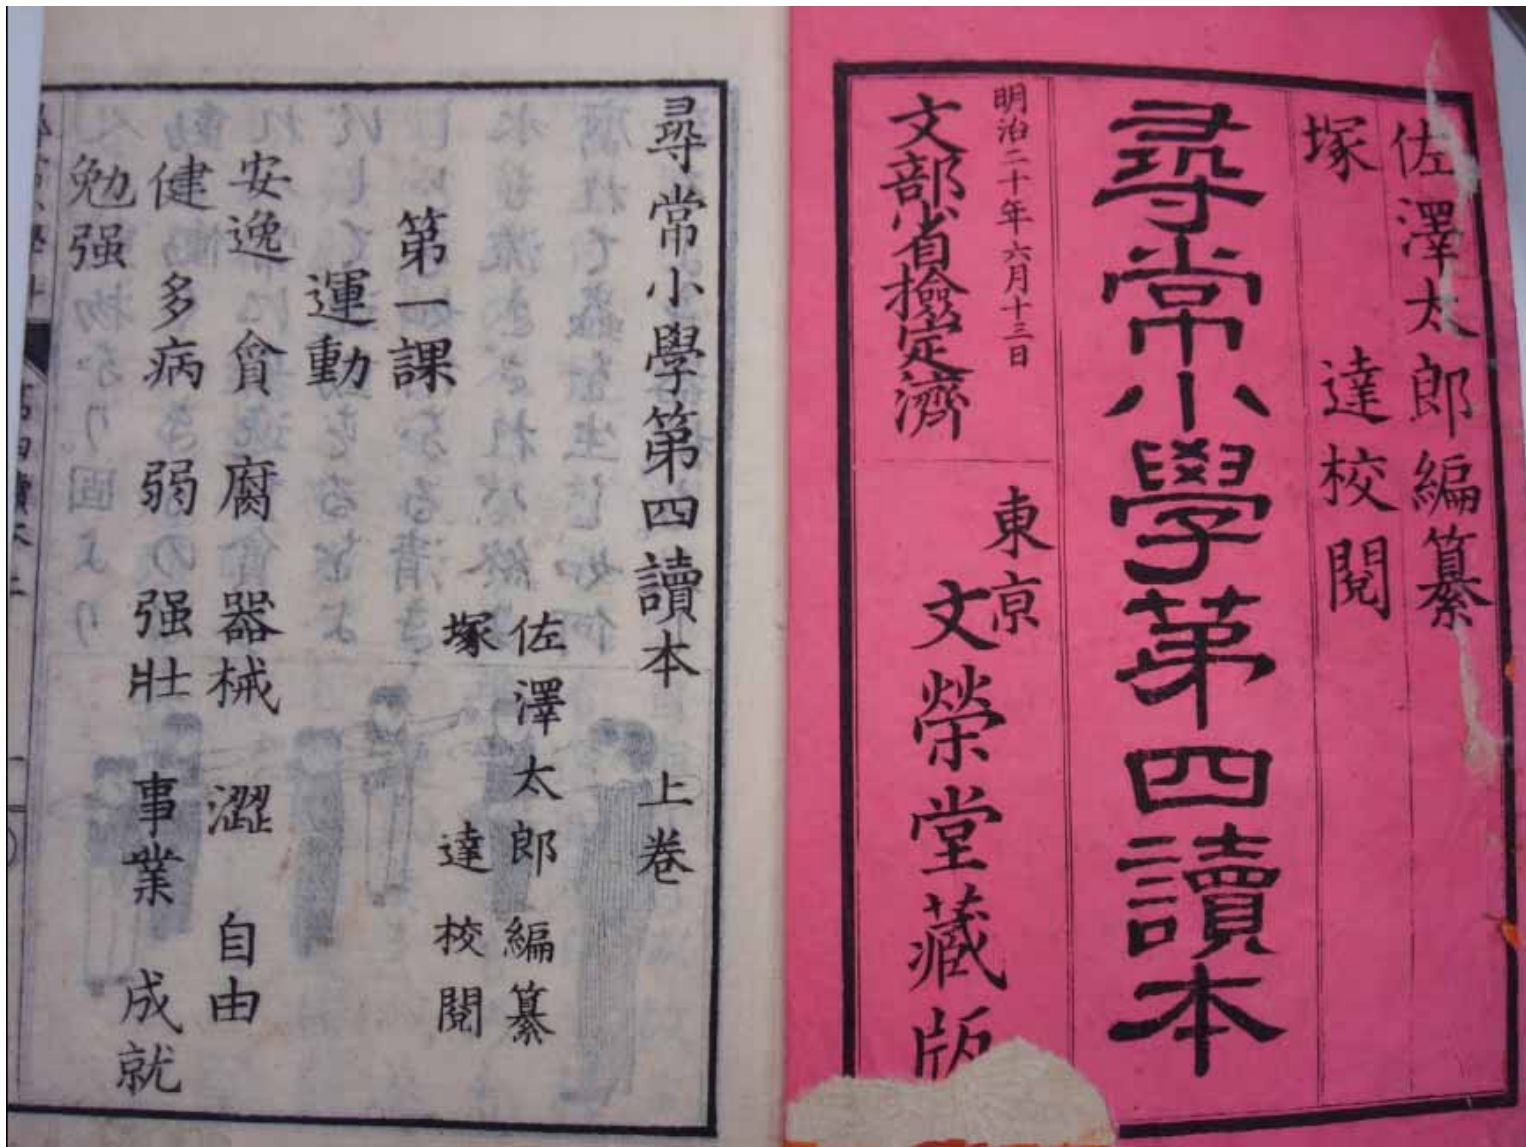 佐澤太郎編纂
塚達校閱
尋常小學第四讀本
明治二十年六月十三日
文部省檢定濟
東京
文榮堂藏版
尋常小學第四讀本 上卷
佐澤太郎編纂
塚達校閱
第一課
運動
安逸 貪 腐 器械 澀 自由
健 多病 弱 强壯 事業 成就
勉强